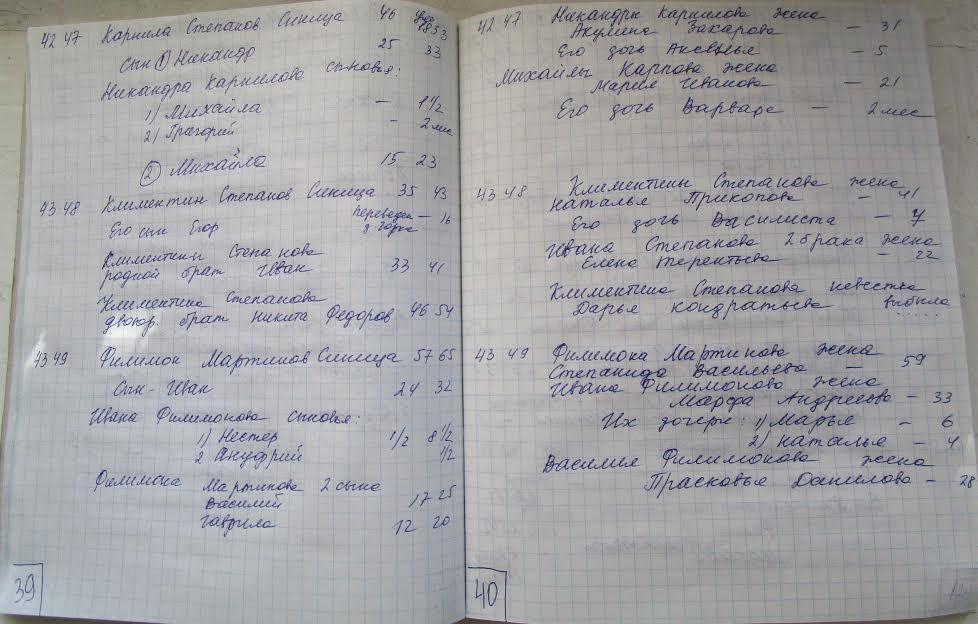 42 47 Карнила Степанов Синица 46 1853
сын ① Никандр 25 33
Никандра Карнилова сыновья:
1) Михайла — 1 1/2
2) Григорий — 2 мес
② Михайла 15 23
43 48 Климентин Степанов Синица 35 43
Его сын Егор переведен — 16
Климентины Степанова
родной брат Иван 33 41
Климентина Степанова
двоюр. брат Никита Федоров 46 54
43 49 Филимон Мартинов Синица 57 65
Сын - Иван 24 32
Ивана Филимонова сыновья:
1) Нестер 1/2 8 1/2
2 Ануфрий 1/2
Филимона Мартинова 2 сына
Василий 17 25
Гаврила 12 20
39
42 47 Никандры Карнилова жена
Акулина Захарова — 31
Его дочь Аксенья — 5
Михайлы Карпова жена
Мария Иванова — 21
Его дочь Варвара — 2 мес
43 48 Климентин Степанова жена
Наталья Прикопова — 41
Его дочь Василиста — 7
Ивана Степанова 2 брака жена
Елена Терентьева — 22
Климентина Степанова невестка
Дарья Кондратьева выбыла
43 49 Филимона Мартинова жена
Степанида Васильева — 59
Ивана Филимонова жена
Марфа Андреева — 33
Их дочери: 1) Марья — 6
2) Наталья — 4
Василья Филимонова жена
Прасковья Данилова — 28
40